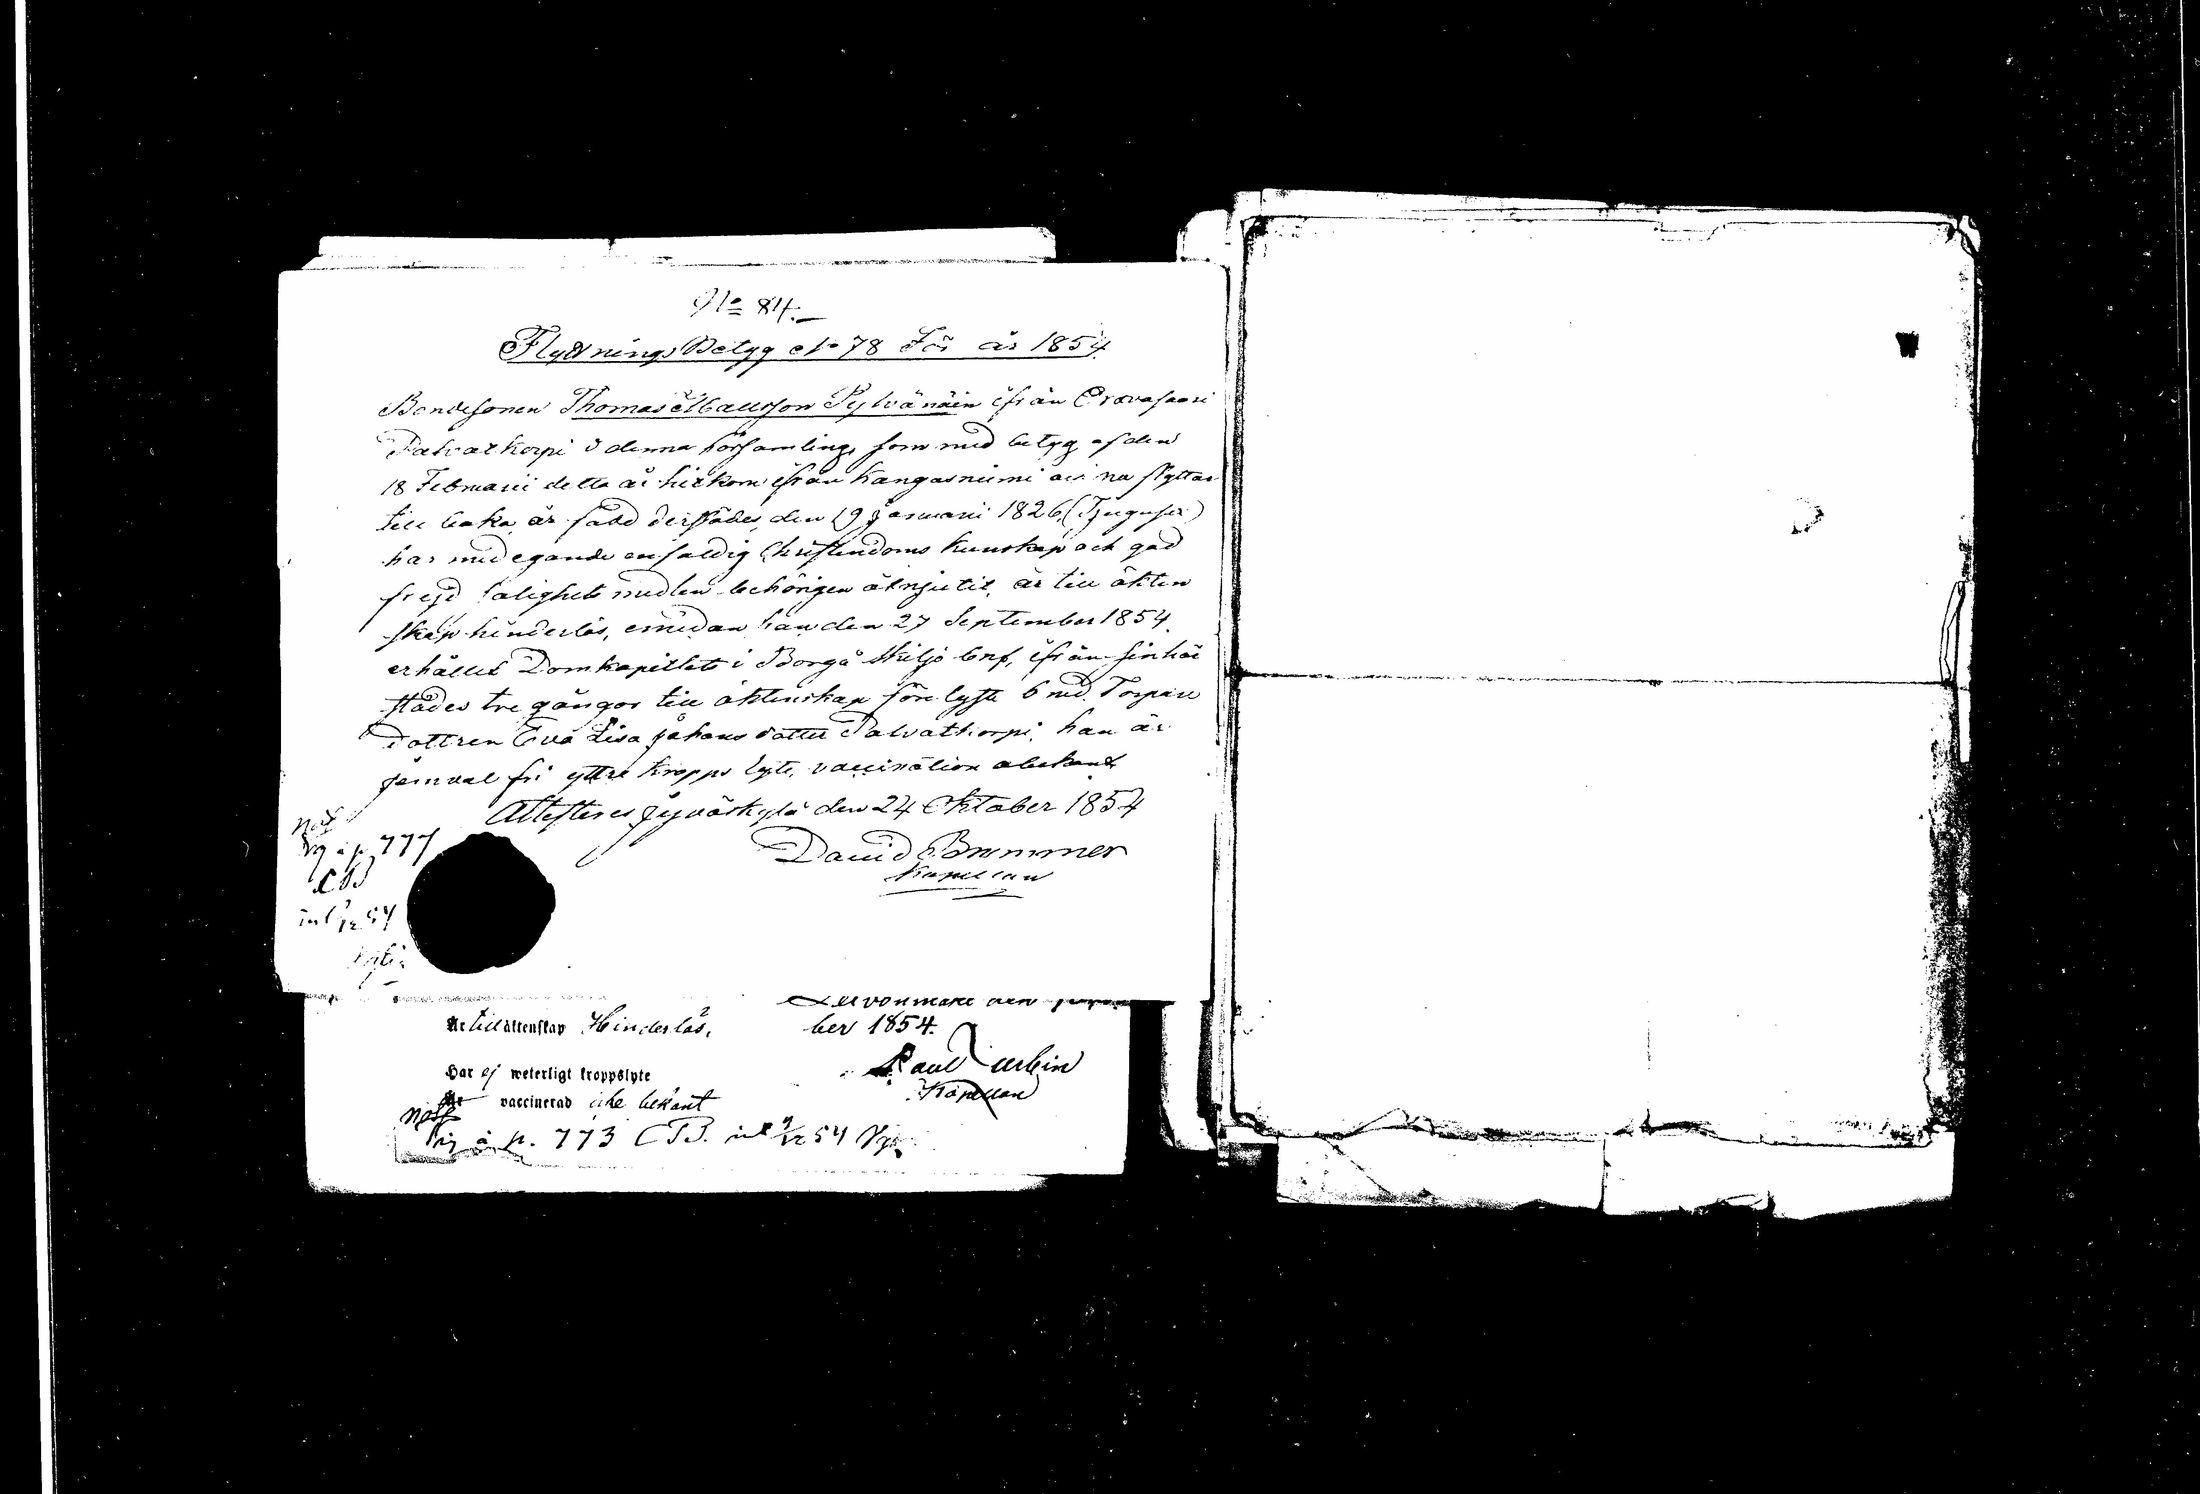 No 84.
Flyttnings Betyg No 78 För år 1854
Bondesonen Thomas Mattsson Pylvänäin ifrån Oravasaari
Palvatkorpi i denna församling, som med betyg af den
18 Februarii detta år hitkom ifrån Kangasniemi och nu flyttar
till baka, är född derstädes den 19 Januarii 1826, (Tjugusex)
har med egande enfaldig Christendoms kunskap och god
frejd salighets medlen behörigen åtnjutit, är till äkten
skap hinderlös, emedan han den 27 September 1854
erhållit Domkapitlets i Borgå skiljo bref, ifrån sin här
städes tre gångor till äktenskap före lyste b med Torpare
dottren Eva Lisa Johans dotter Palvatkorpi, han är
jemval fri yttre kropps lyte, vaccination obekant
Attesteres Jyväskylä den 24 Oktober 1854
David Brummer
Kapellan
not
p 777
CB
54
den
Är till äktenskap Hinderlös.
ber 1854.
Har ej weterligt kroppslyte
Paul
Kapellan
vaccinerad icke bekant
not
å p. 773 CB. 54